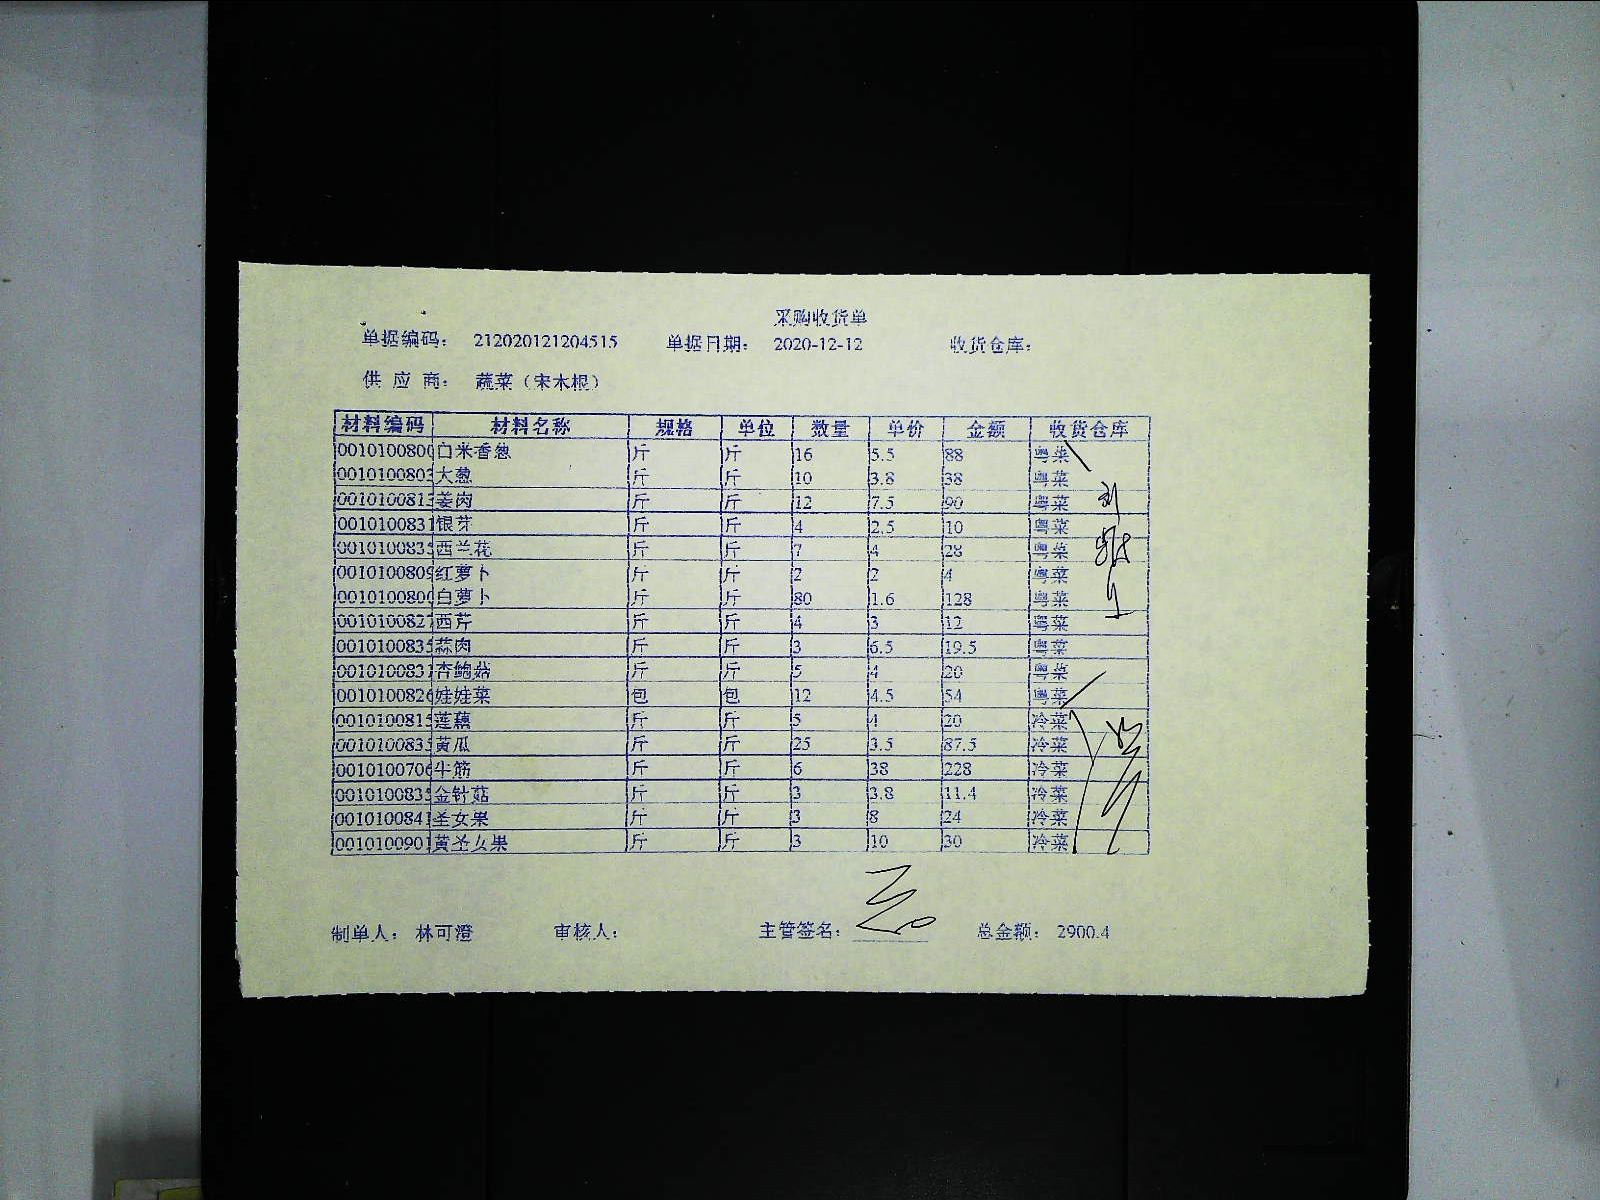 采购收货单
单据编码： 212020121204515 单据日期： 2020-12-12 收货仓库：
供 应 商： 蔬菜（宋木根）
材料编码 材料名称 规格 单位 数量 单价 金额 收货仓库
001010080 白米香葱 斤 斤 16 5.5 88 粤菜
001010080 大葱 斤 斤 10 3.8 38 粤菜
001010081 姜肉 斤 斤 12 7.5 90 粤菜
001010083 银芽 斤 斤 4 2.5 10 粤菜
001010083 西兰花 斤 斤 7 4 28 粤菜
001010080 红萝卜 斤 斤 2 2 4 粤菜
001010080 白萝卜 斤 斤 80 1.6 128 粤菜
001010082 西芹 斤 斤 4 3 12 粤菜
001010083 蒜肉 斤 斤 3 6.5 19.5 粤菜
001010083 杏鲍菇 斤 斤 5 4 20 粤菜
001010082 娃娃菜 包 包 12 4.5 54 粤菜
001010081 莲藕 斤 斤 5 4 20 冷菜
001010083 黄瓜 斤 斤 25 3.5 87.5 冷菜
001010070 牛筋 斤 斤 6 38 228 冷菜
001010083 金针菇 斤 斤 3 3.8 11.4 冷菜
001010084 圣女果 斤 斤 3 8 24 冷菜
001010090 黄圣女果 斤 斤 3 10 30 冷菜
制单人： 林可澄 审核人： 主管签名： 总金额： 2900.4